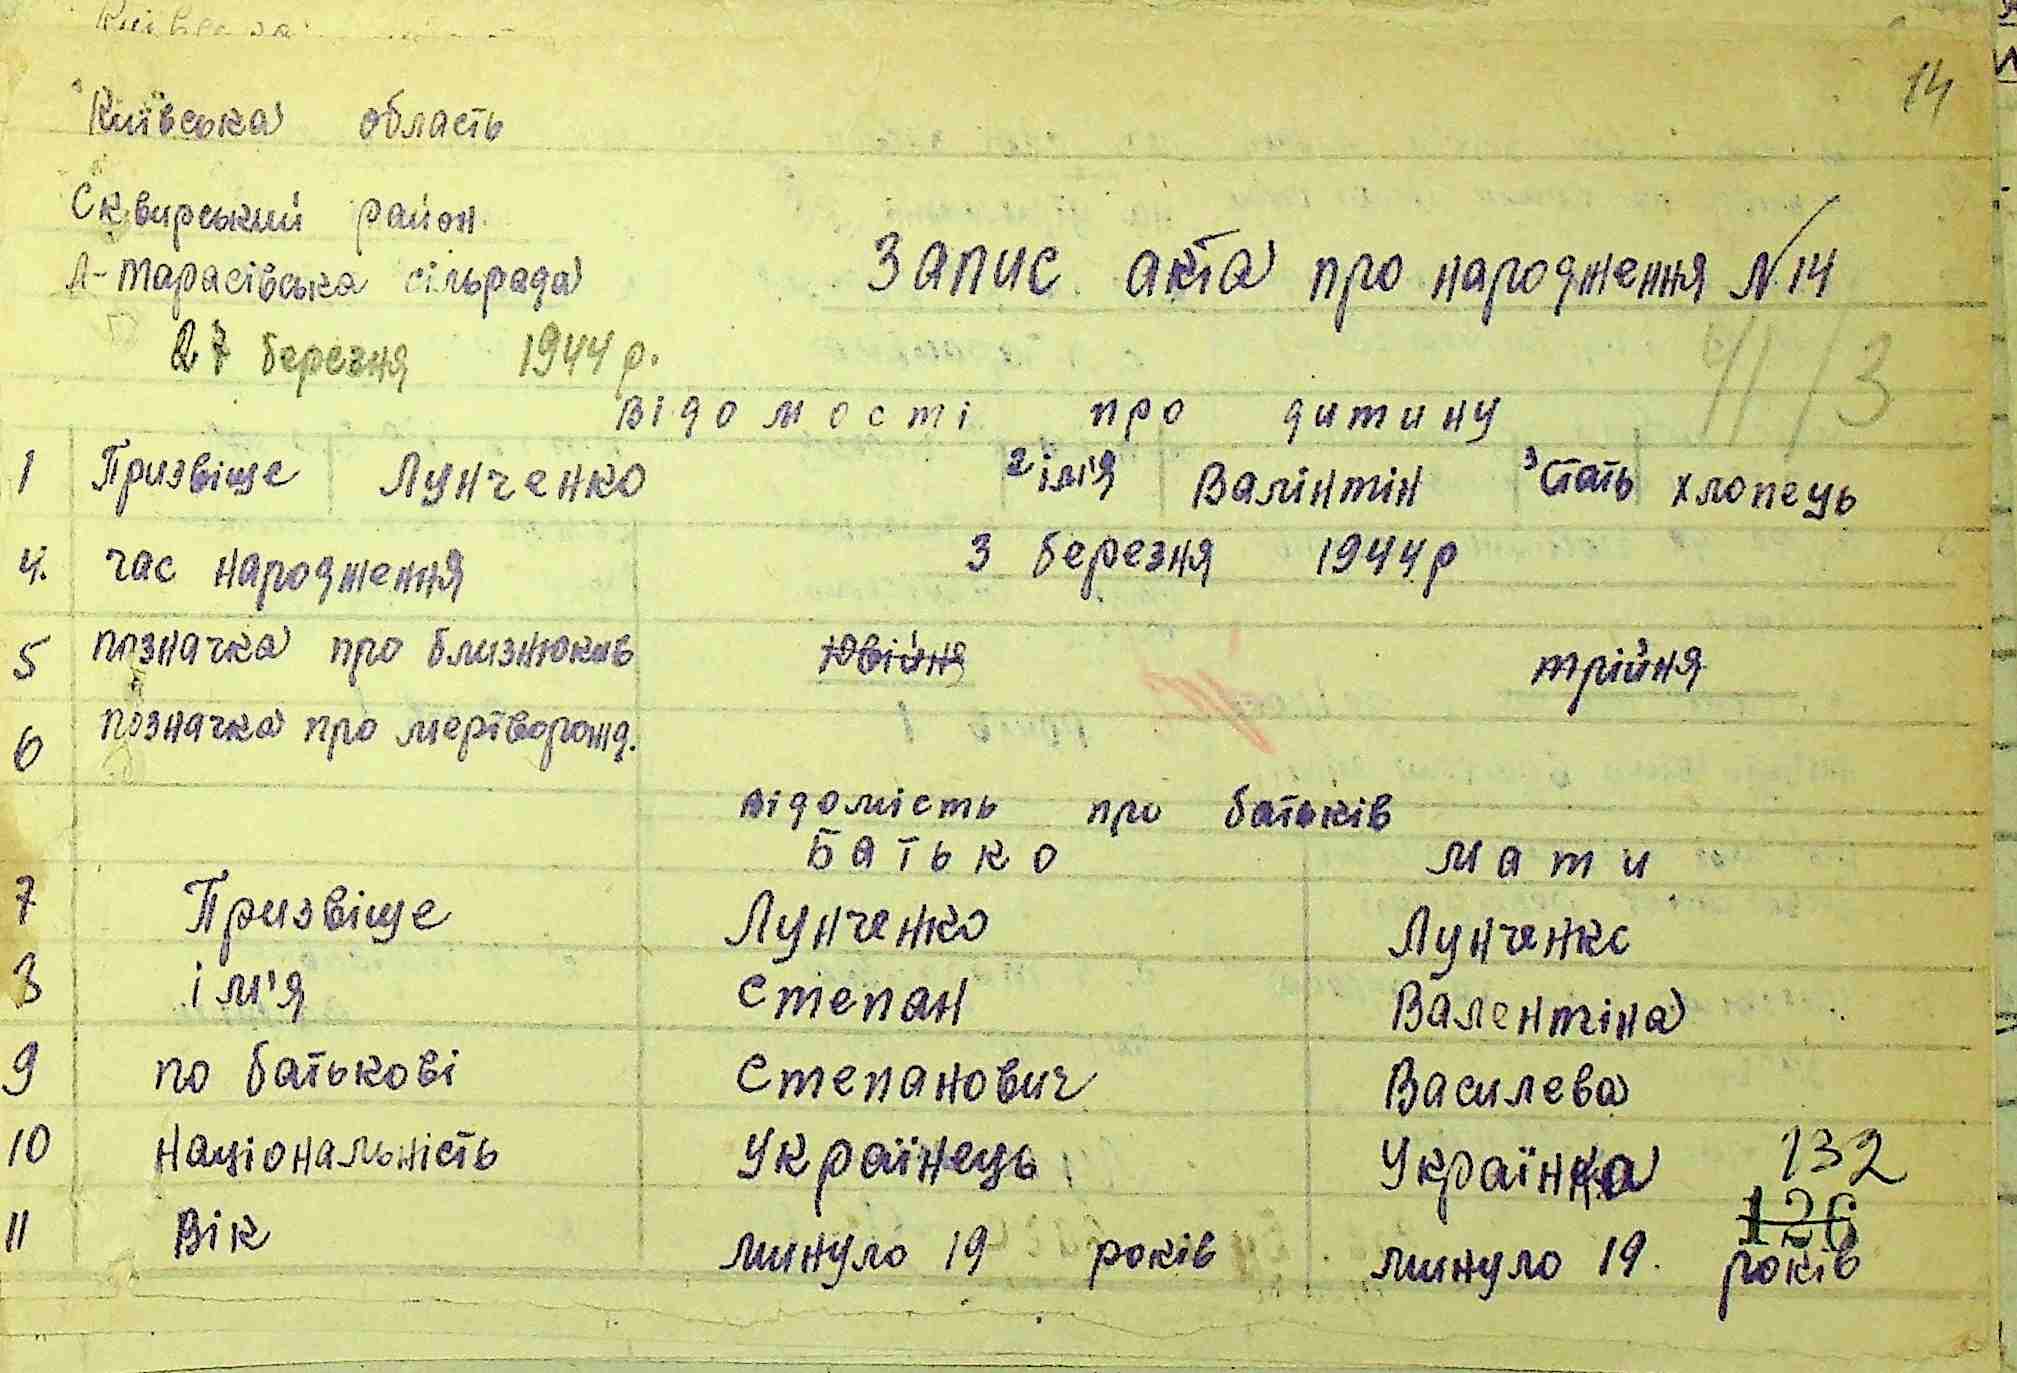 14
Київська область
Сквирський район
Л-Тарасівська сільрада
27 березня 1944 р.
Запис акта про народження N 14
41/3
відомості про дитину
1 Призвіще Лунченко 2 ім'я Валінтін 3 стать хлопець
4. час народження 3 березня 1944 р
5 позначка про близнюків двійня трійня
6 позначка про мертворожд.
відомість про батьків
Батько мати
7 Призвіще Лунченко Лунченко
8 ім'я Степан Валентіна
9 по батькові Степанович Василева
10 національність Українець Українка
132
126
11 Вік минуло 19 років минуло 19. років